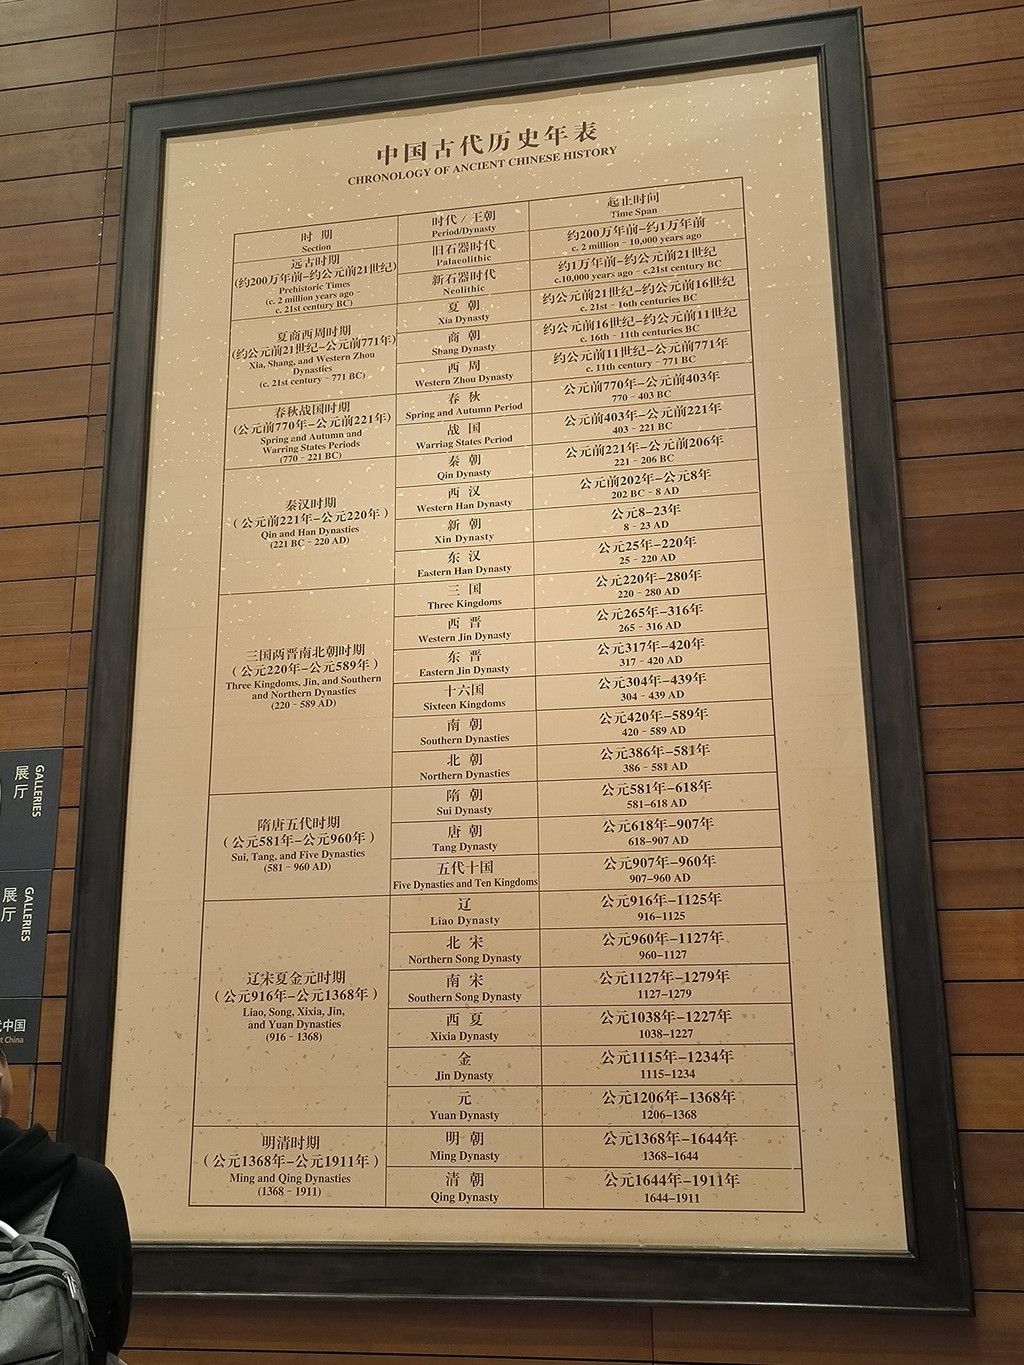 中国古代历史年表
CHRONOLOGY OF ANCIENT CHINESE HISTORY
时 期
Section
时代 / 王朝
Period/Dynasty
起止时间
Time Span
远古时期
(约200万年前–约公元前21世纪)
Prehistoric Times
(c. 2 million years ago –
c. 21st century BC)
旧石器时代
Palaeolithic
约200万年前–约1万年前
c. 2 million – 10,000 years ago
新石器时代
Neolithic
约1万年前–约公元前21世纪
c.10,000 years ago – c.21st century BC
夏商西周时期
(约公元前21世纪–公元前771年)
Xia, Shang, and Western Zhou
Dynasties
(c. 21st century – 771 BC)
夏 朝
Xia Dynasty
约公元前21世纪–约公元前16世纪
c. 21st – 16th centuries BC
商 朝
Shang Dynasty
约公元前16世纪–约公元前11世纪
c. 16th – 11th centuries BC
西 周
Western Zhou Dynasty
约公元前11世纪–公元前771年
c. 11th century – 771 BC
春秋战国时期
(公元前770年–公元前221年)
Spring and Autumn and
Warring States Periods
(770 – 221 BC)
春 秋
Spring and Autumn Period
公元前770年–公元前403年
770 – 403 BC
战 国
Warring States Period
公元前403年–公元前221年
403 – 221 BC
秦汉时期
(公元前221年–公元220年)
Qin and Han Dynasties
(221 BC – 220 AD)
秦 朝
Qin Dynasty
公元前221年–公元前206年
221 – 206 BC
西 汉
Western Han Dynasty
公元前202年–公元8年
202 BC – 8 AD
新 朝
Xin Dynasty
公元8–23年
8 – 23 AD
东 汉
Eastern Han Dynasty
公元25年–220年
25 – 220 AD
三国两晋南北朝时期
(公元220年–公元589年)
Three Kingdoms, Jin, and Southern
and Northern Dynasties
(220 – 589 AD)
三 国
Three Kingdoms
公元220年–280年
220 – 280 AD
西 晋
Western Jin Dynasty
公元265年–316年
265 – 316 AD
东 晋
Eastern Jin Dynasty
公元317年–420年
317 – 420 AD
十六国
Sixteen Kingdoms
公元304年–439年
304 – 439 AD
南 朝
Southern Dynasties
公元420年–589年
420 – 589 AD
北 朝
Northern Dynasties
公元386年–581年
386 – 581 AD
隋唐五代时期
(公元581年–公元960年)
Sui, Tang, and Five Dynasties
(581 – 960 AD)
隋 朝
Sui Dynasty
公元581年–618年
581–618 AD
唐 朝
Tang Dynasty
公元618年–907年
618–907 AD
五代十国
Five Dynasties and Ten Kingdoms
公元907年–960年
907–960 AD
辽宋夏金元时期
(公元916年–公元1368年)
Liao, Song, Xixia, Jin,
and Yuan Dynasties
(916 – 1368)
辽
Liao Dynasty
公元916年–1125年
916–1125
北 宋
Northern Song Dynasty
公元960年–1127年
960–1127
南 宋
Southern Song Dynasty
公元1127年–1279年
1127–1279
西 夏
Xixia Dynasty
公元1038年–1227年
1038–1227
金
Jin Dynasty
公元1115年–1234年
1115–1234
元
Yuan Dynasty
公元1206年–1368年
1206–1368
明清时期
(公元1368年–公元1911年)
Ming and Qing Dynasties
(1368 – 1911)
明 朝
Ming Dynasty
公元1368年–1644年
1368–1644
清 朝
Qing Dynasty
公元1644年–1911年
1644–1911
展厅
GALLERIES
展厅
GALLERIES
中国
China